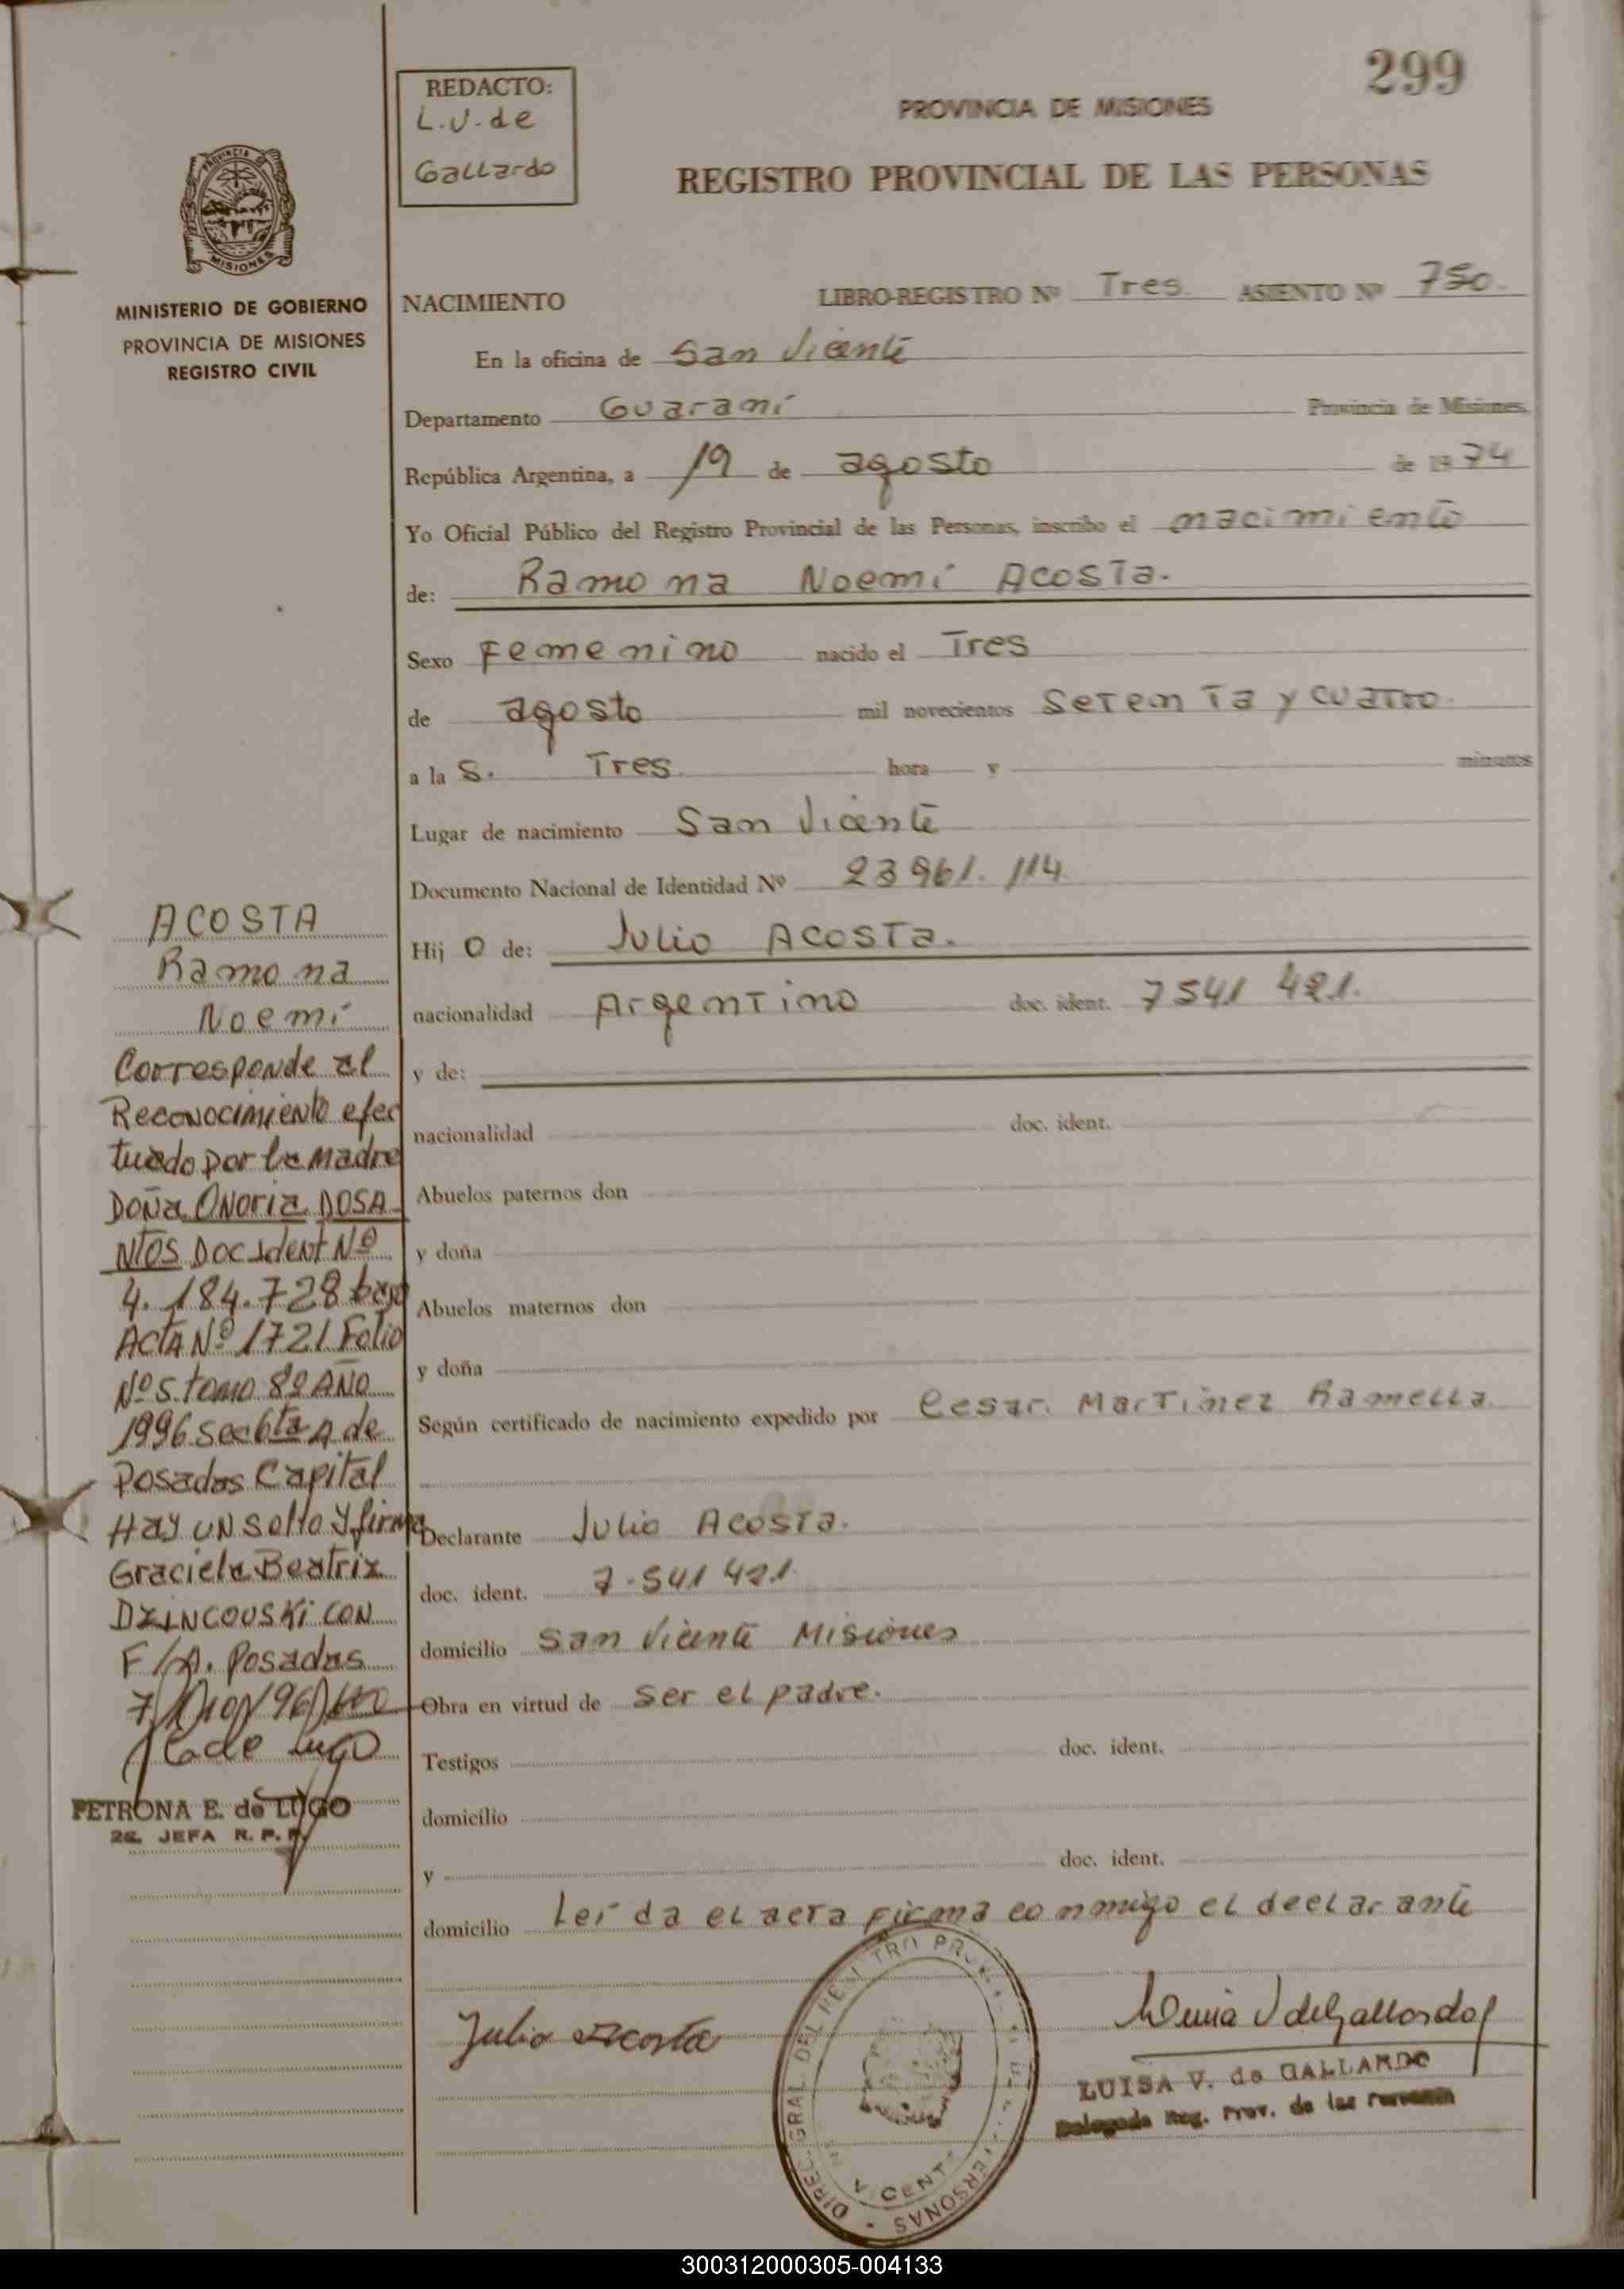 299
REDACTO:
L.V. de
Gallardo
PROVINCIA DE MISIONES
REGISTRO PROVINCIAL DE LAS PERSONAS
PROVINCIA DE
MISIONES
MINISTERIO DE GOBIERNO
PROVINCIA DE MISIONES
REGISTRO CIVIL
NACIMIENTO LIBRO-REGISTRO Nº Tres ASIENTO Nº 750.
En la oficina de San Vicente
Departamento Guaraní Provincia de Misiones.
República Argentina, a 19 de agosto de 19 74
Yo Oficial Público del Registro Provincial de las Personas, inscribo el nacimiento
de: Ramona Noemí Acosta.
Sexo Femenino nacido el Tres
de agosto mil novecientos Setenta y cuatro.
a la s. Tres hora y minutos
Lugar de nacimiento San Vicente
Documento Nacional de Identidad Nº 23 961. 114
Hij o de: Julio Acosta.
nacionalidad Argentino doc. ident. 7541 421.
y de:
nacionalidad doc. ident.
Abuelos paternos don
y doña
Abuelos maternos don
y doña
Según certificado de nacimiento expedido por Cesar Martinez Ramella.
Declarante Julio Acosta.
doc. ident. 7.541 421
domicilio San Vicente Misiones
Obra en virtud de ser el padre.
Testigos doc. ident.
domicilio
y doc. ident.
domicilio Leída el acta firma conmigo el declarante
ACOSTA
Ramona
Noemí
Corresponde al
Reconocimiento efec
tuado por la Madre
Doña Onoria DOSA
NTOS Doc Ident Nº
4.184.728 bajo
Acta Nº 1721 Folio
Nº 5 tomo 8º Año
1996 Sec 6ta A de
Posadas Capital
Hay un sello y firma
Graciela Beatriz
DZINCOUSKI CON
F/A. Posadas
PETRONA E. de LUGO
2a. JEFA R. P. P.
Julio Acosta
DIREC. GRAL DEL REGISTRO PROV. PERSONAS
VICENTE
Luisa V de Gallardo
LUISA V. de GALLARDO
Delegada Reg. Prov. de las Personas
300312000305-004133